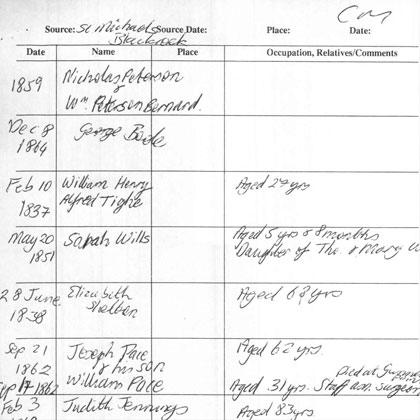 CM
Source: St Michaels Source Date: Place: Date:
Blackrock
Date Name Place Occupation, Relatives/Comments
1859 Nicholas Peterson
&
Wm. Peterson Bernard.
Dec 8 George Boole
1864
Feb 10 William Henry Aged 27 yrs
1837 Alfred Tighe
May 20 Sarah Wills Aged 5 yrs & 8 months
1851 Daughter of Tho. & Mary W
28 June Elizabeth Aged 62 yrs
1838
Sep 21 Joseph Pace Aged 62 yrs.
1862 & his son Died at
Sep 17 1862 William Pace Aged 31 yrs. Staff ass. surgeon
Feb 3 Judith Jennings Aged 83 yrs